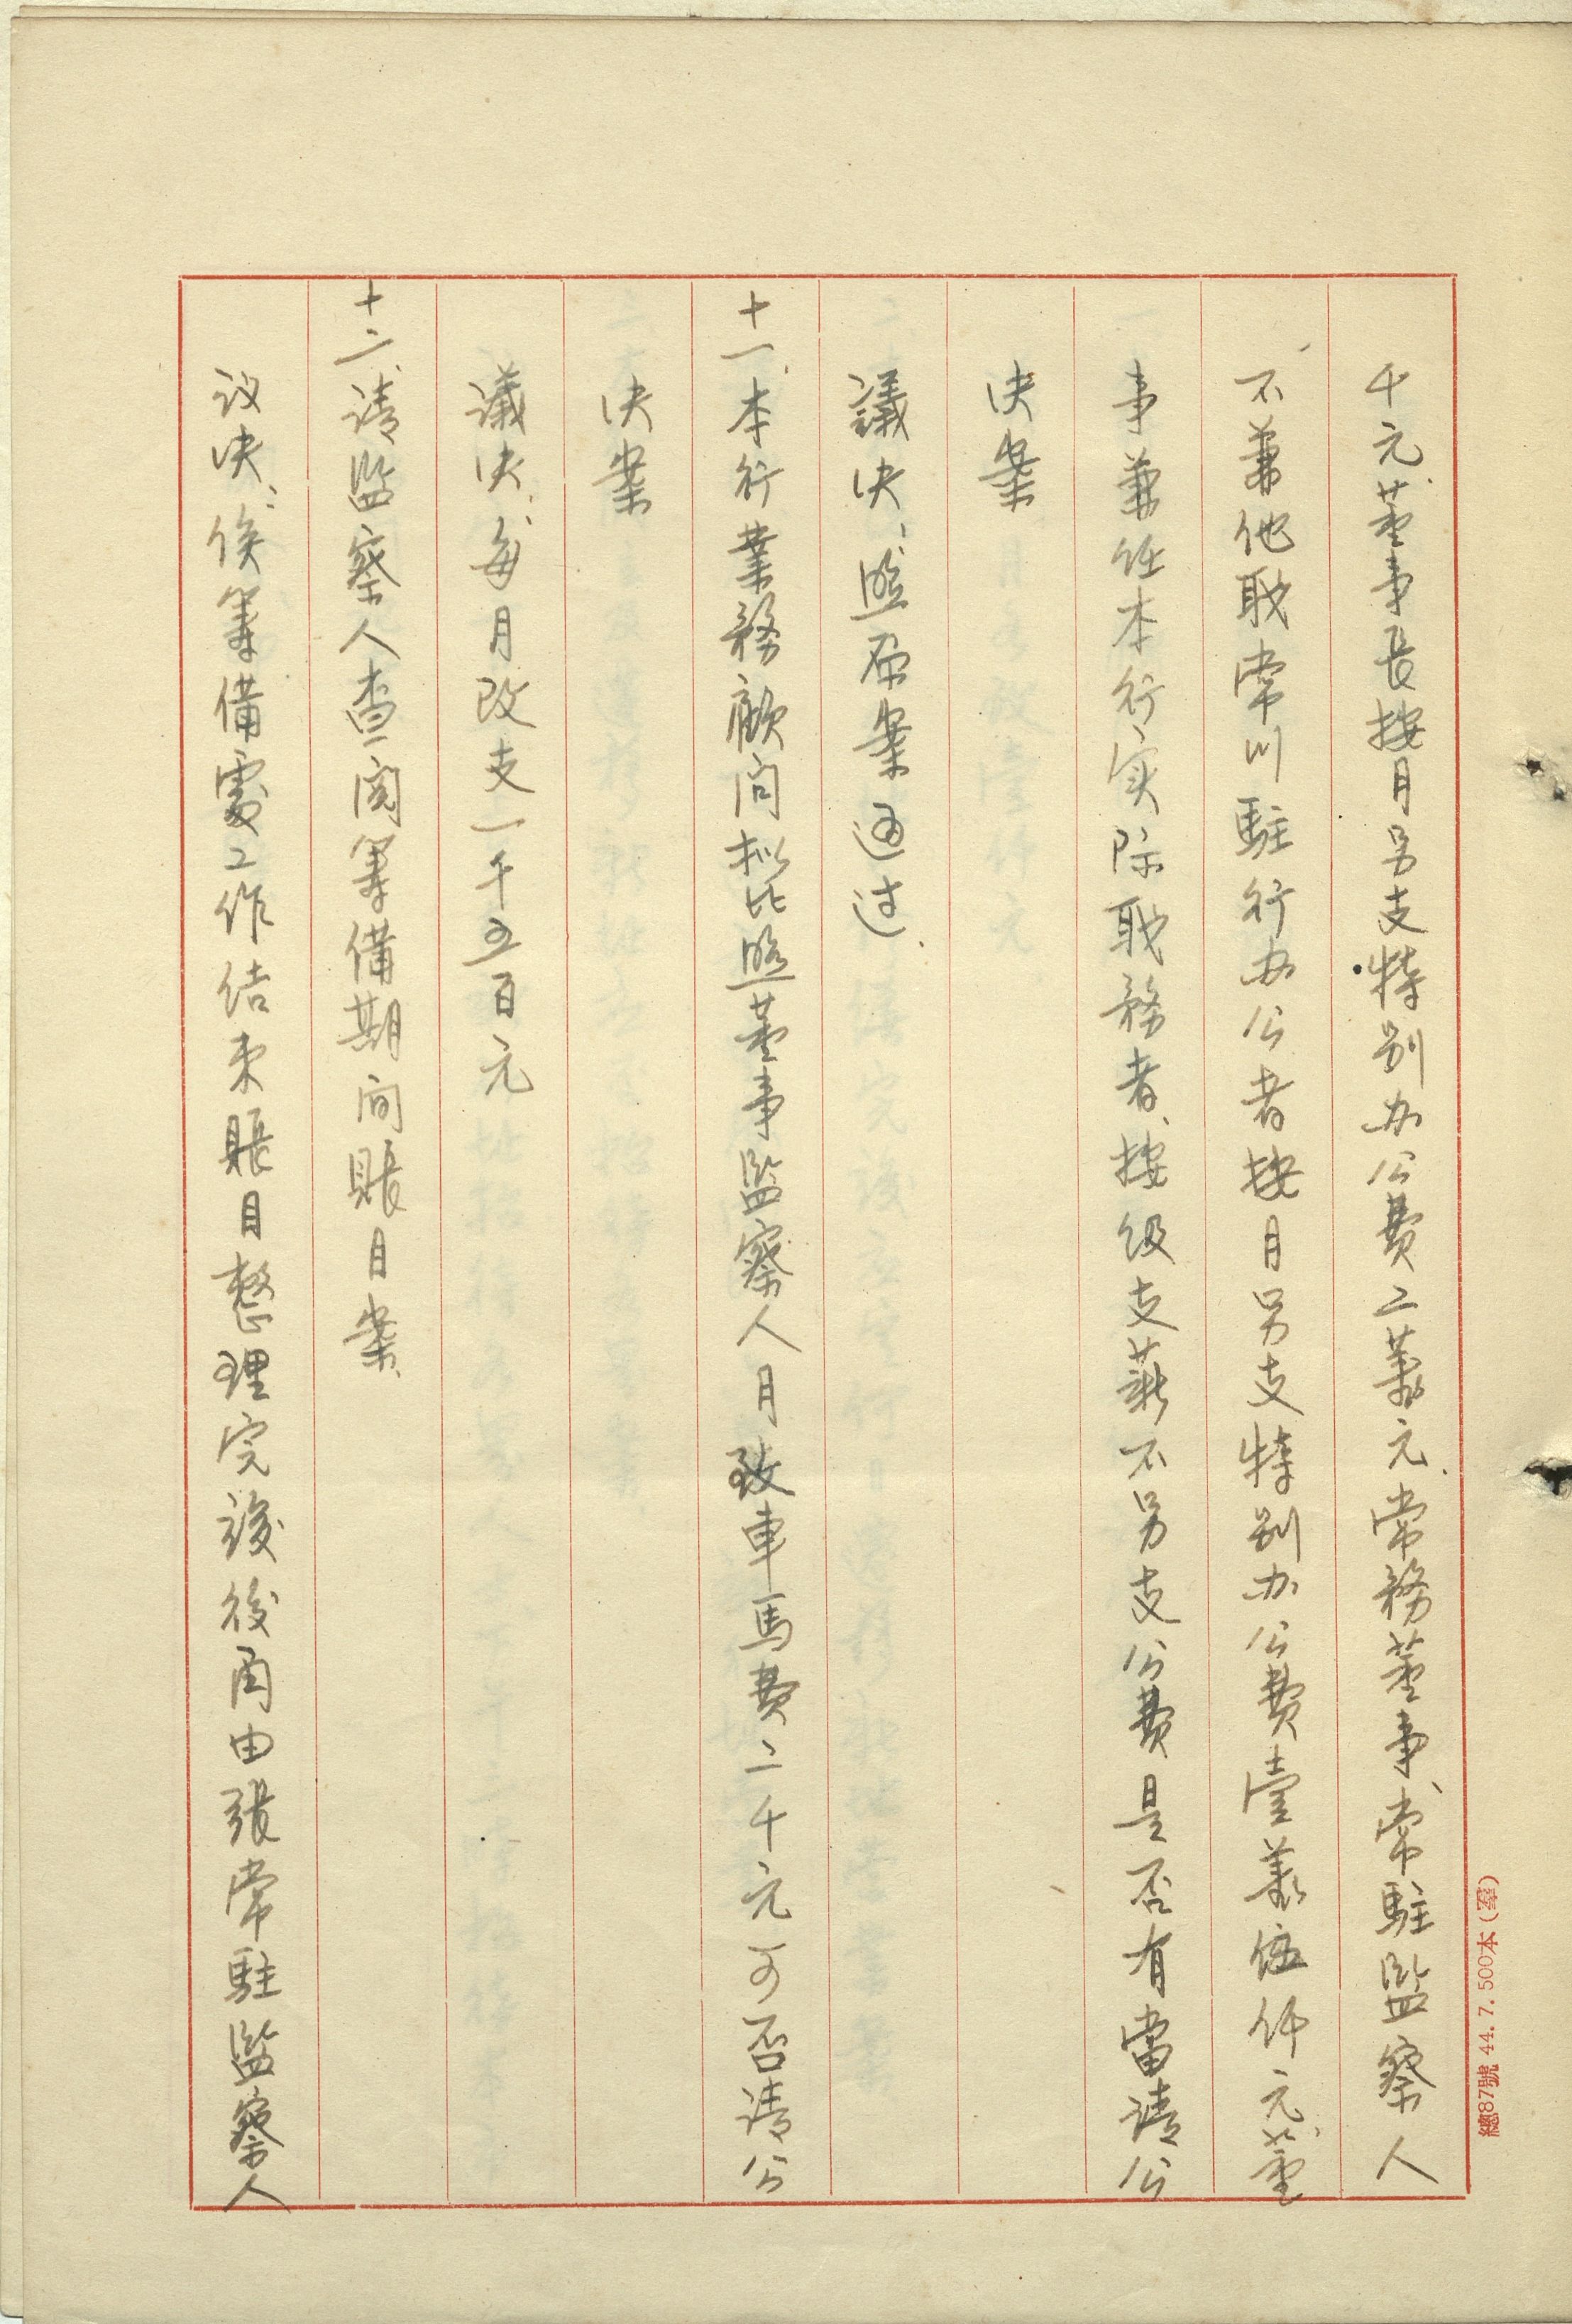 千元、董事長按月另支特别办公費二萬元、常務董事、常駐監察人
不兼他職常川駐行办公者按月另支特别办公費壹萬伍仟元、董
事兼任本行实际職務者、按级支薪不另支公費是否有當请公
决案
議决：照原案通过、
十一、本行業務顧问拟比照董事監察人月致車馬費二千元可否请公
决案
議决：每月改支一千五百元
十二、请監察人查阅筹備期间賬目案、
议决：俟筹備處工作结束賬目整理完竣後再由張常駐監察人
總87號 44. 7. 500本（羣）